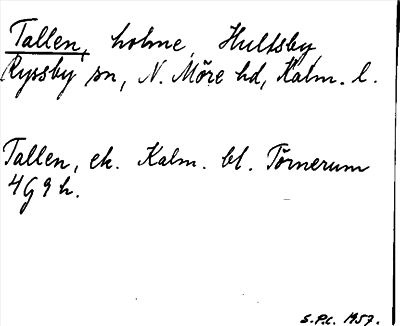 Tallen, holme, Hultsby,
Ryssby sn, N. Möre hd, Kalm. l.
Tallen, ek. Kalm. bl. Törnerum
4G9h.
S.P.L. 1957.